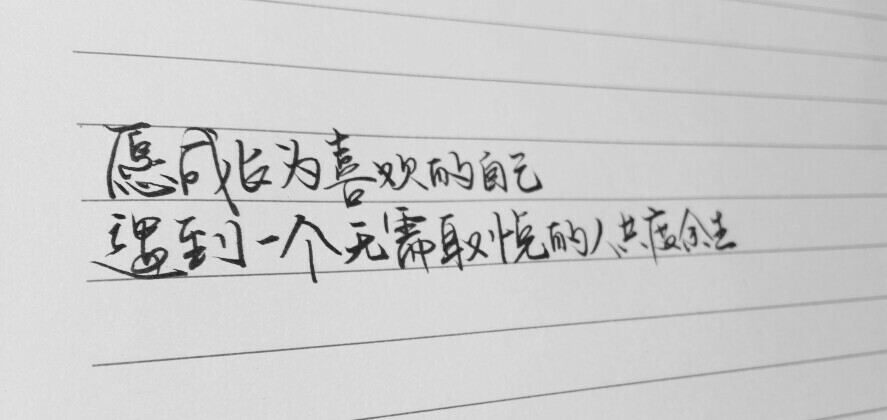 愿成长为喜欢的自己
遇到一个无需取悦的人共度余生